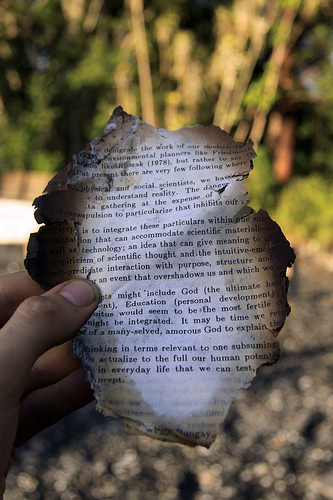 denigrate the work of our
Environmental planners like
like Roszak (1978), but rather to say
at present there are very few following where
and social scientists, we ha
e to understand reality. The dange
ta gathering at the expense of
mpulsion to particularize that inhibits our
is to integrate these particulars within
that can accommodate scientific materialis
technology; an idea that can give meaning to
mpiricism of scientific thought and the intuitive-emo
interaction with purpose, structure and
an event that overshadows us and which we
ts might include God (the ultimate
ent), Education (personal development),
nitus would seem to be the most fertile
might be integrated. It may be time we re
of a many-selved, amorous God to explain
hinking in terms relevant to one subsuming
actualize to the full our human potent
in everyday life that we can test,
ncept.